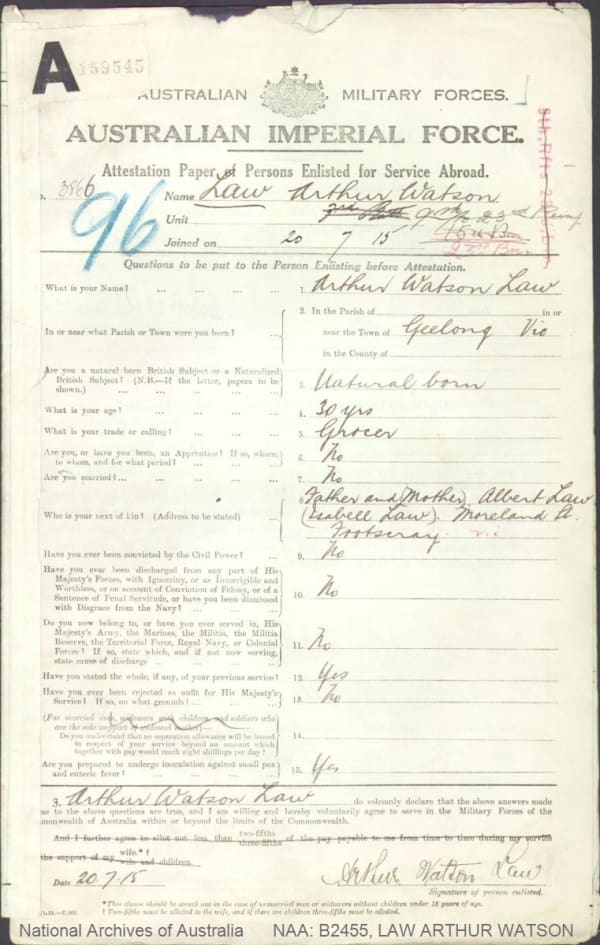 A
159545
AUSTRALIAN MILITARY FORCES.
AUSTRALIAN IMPERIAL FORCE.
Attestation Paper of Persons Enlisted for Service Abroad.
3866
96
Name Law Arthur Watson
Unit
Joined on 20 7 15
Questions to be put to the Person Enlisting before Attestation.
What is your Name? ... ... ... ... 1. Arthur Watson Law
2. In the Parish of in or
In or near what Parish or Town were you born? ... near the Town of Geelong Vic
in the County of
Are you a natural born British Subject or a Naturalized
British Subject? (N.B.—If the latter, papers to be
shown.) ... ... ... ... 3. Natural born
What is your age? ... ... ... ... 4. 30 yrs
What is your trade or calling? ... ... ... 5. Grocer
Are you, or have you been, an Apprentice? If so, where,
to whom, and for what period? ... ... ... 6. No
Are you married? ... ... ... ... 7. No
8. Father and (Mother) Albert Law
Who is your next of kin? (Address to be stated) ... (Isabell Law). Moreland St.
Footscray. Vic
Have you ever been convicted by the Civil Power? ... 9. No
Have you ever been discharged from any part of His
Majesty's Forces, with Ignominy, or as Incorrigible and
Worthless, or on account of Conviction of Felony, or of a
Sentence of Penal Servitude, or have you been dismissed
with Disgrace from the Navy? ... ... 10. No
Do you now belong to, or have you ever served in, His
Majesty's Army, the Marines, the Militia, the Militia
Reserve, the Territorial Force, Royal Navy, or Colonial
Forces? If so, state which, and if not now serving,
state cause of discharge ... ... ... 11. No
Have you stated the whole, if any, of your previous service? 12. Yes
Have you ever been rejected as unfit for His Majesty's
Service? If so, on what grounds? ... ... 13. No
(For married men, widowers with children, and soldiers who
are the sole support of widowed mother)—
Do you understand that no separation allowance will be issued
in respect of your service beyond an amount which
together with pay would reach eight shillings per day? 14.
Are you prepared to undergo inoculation against small pox
and enteric fever? ... ... ... 15. Yes
I, Arthur Watson Law do solemnly declare that the above answers made
me to the above questions are true, and I am willing and hereby voluntarily agree to serve in the Military Forces of the
monwealth of Australia within or beyond the limits of the Commonwealth.
And I further agree to allot not less than two-fifths three-fifths of the pay payable to me from time to time during my service
the support of my wife.*† wife and children.
Date 20.7.15 Arthur Watson Law
Signature of person enlisted.
*This clause should be struck out in the case of unmarried men or widowers without children under 18 years of age.
† Two-fifths must be allotted to the wife, and if there are children three-fifths must be allotted.
National Archives of Australia NAA: B2455, LAW ARTHUR WATSON